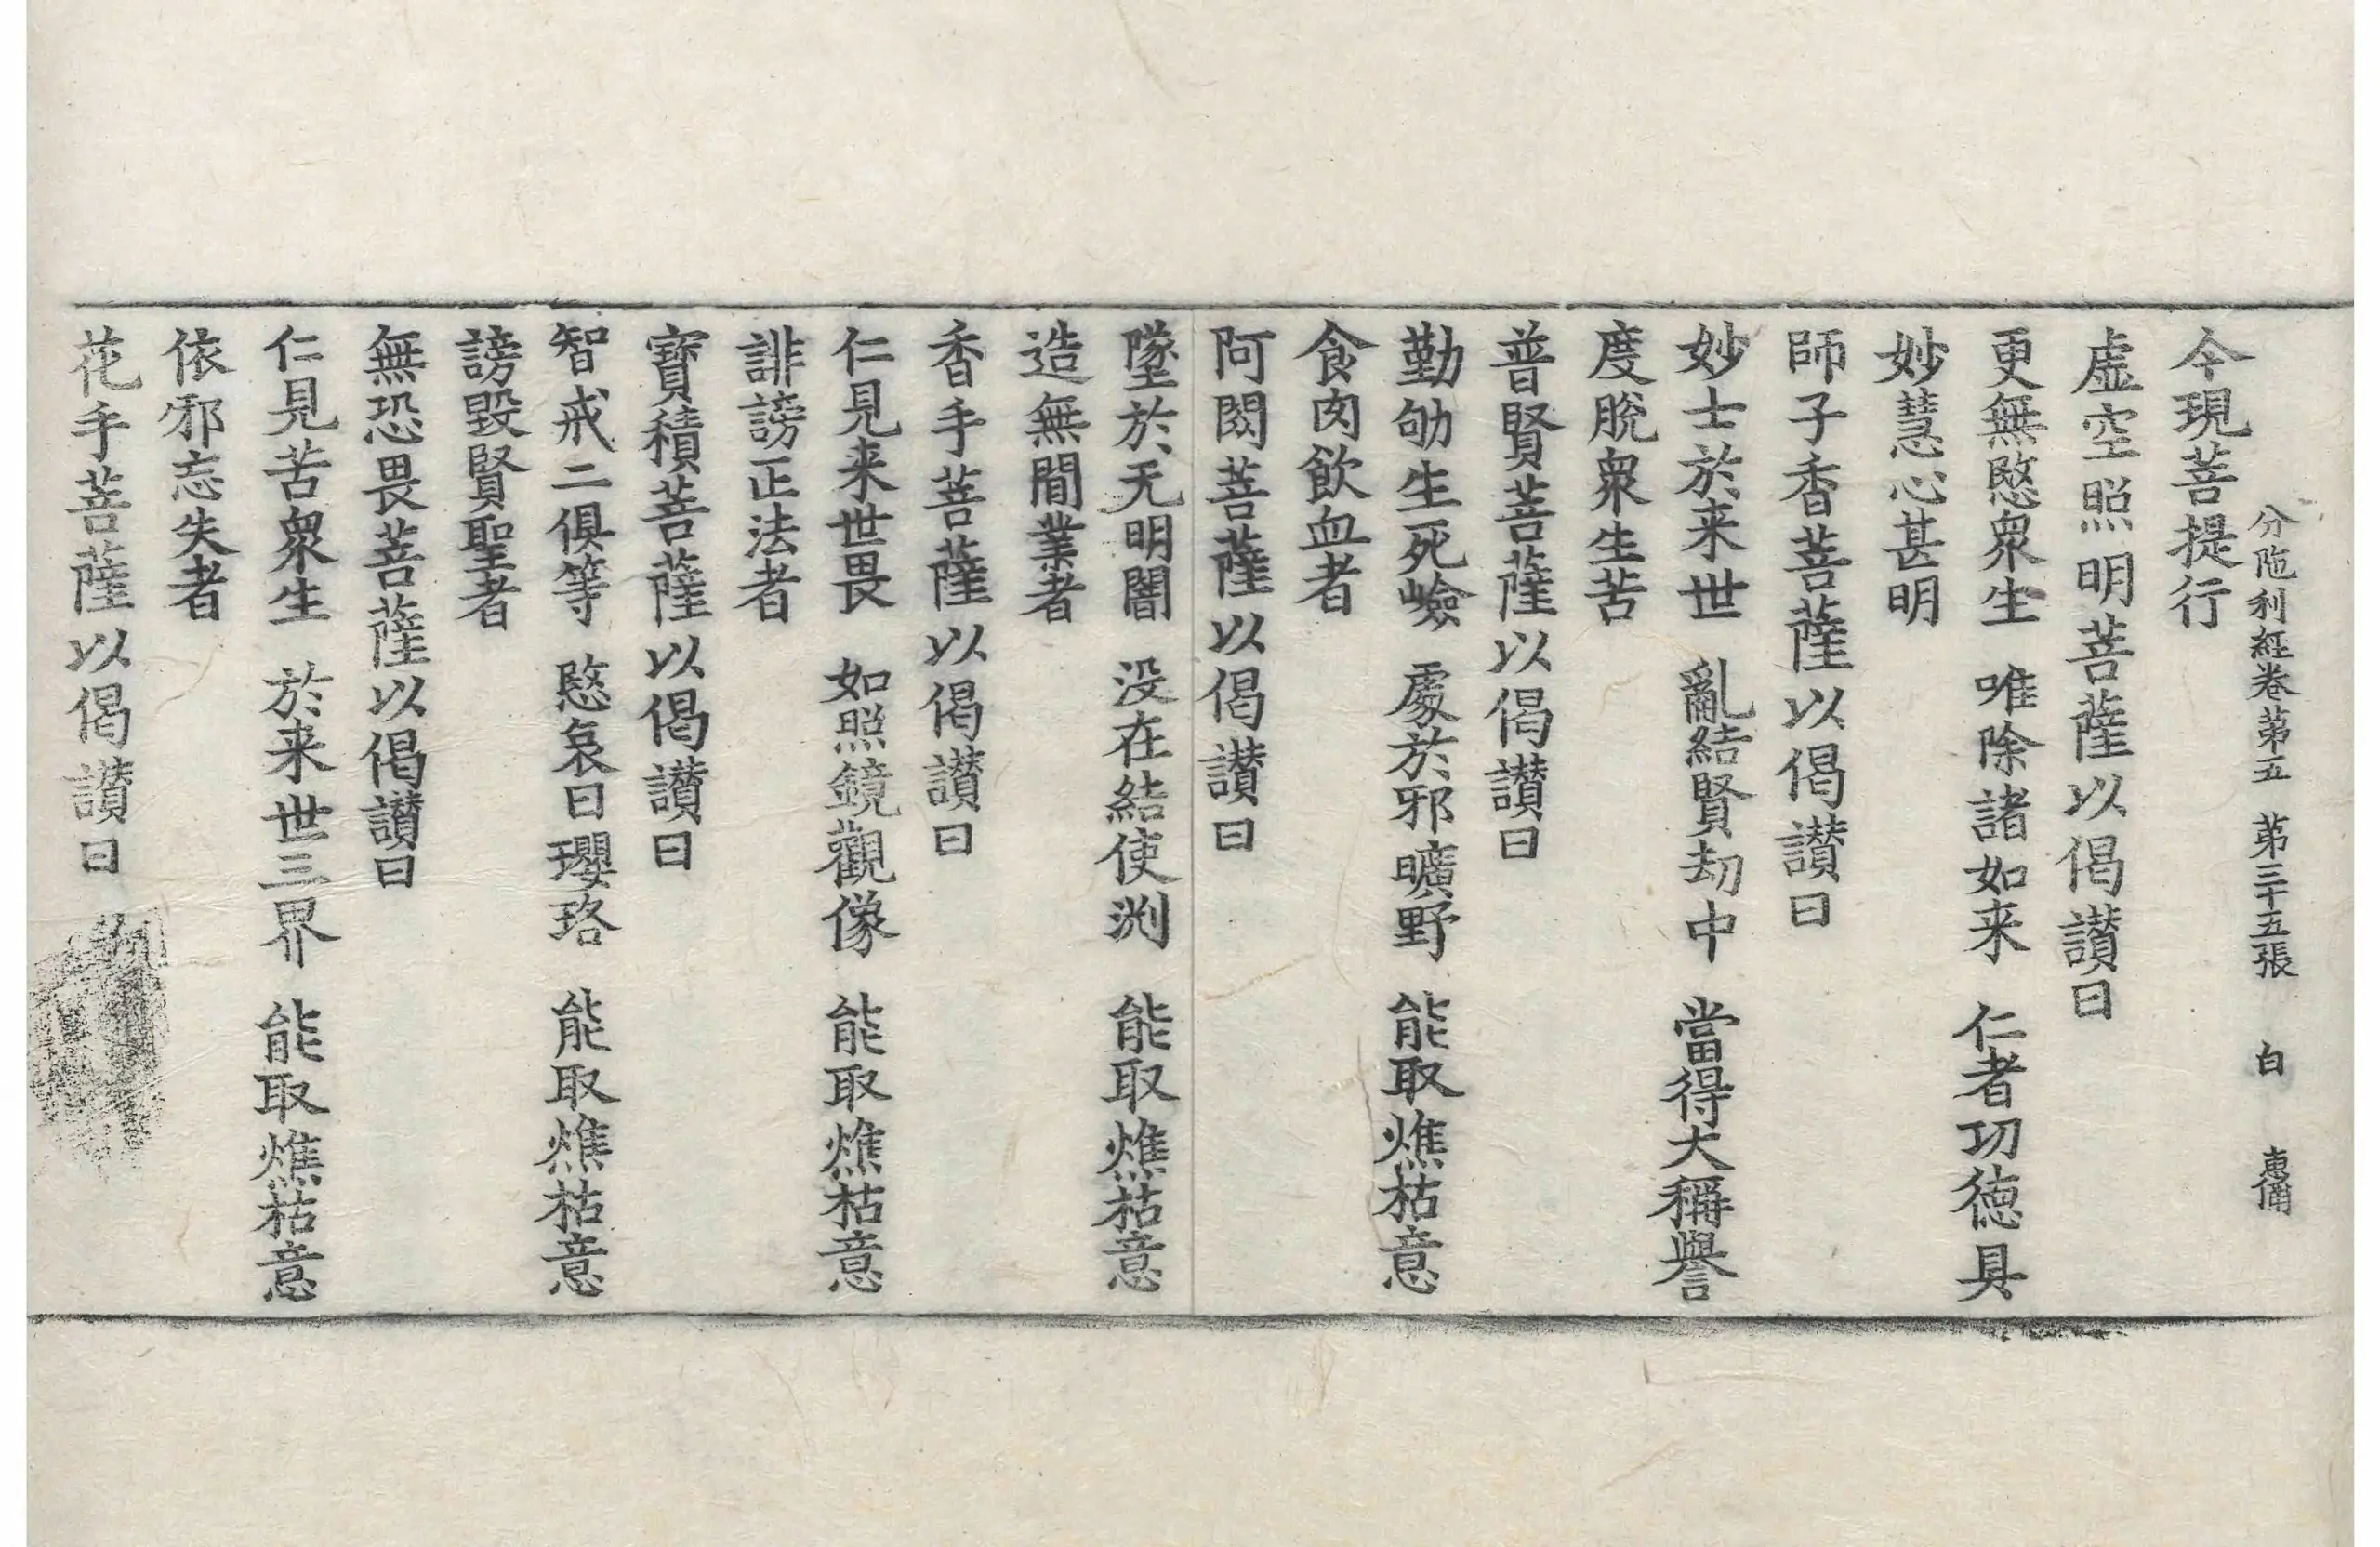 分陁利經卷第五　第三十五張　白　惠備
今現菩提行
虛空照明菩薩以偈讃曰
更無愍衆生　唯除諸如来　仁者功德具
妙慧心甚明
師子香菩薩以偈讃曰
妙士於来世　亂結賢劫中　當得大稱譽
度脫衆生苦
普賢菩薩以偈讃曰
勤劬生死嶮　處於邪曠野　能取燋枯意
食肉飮血者
阿閦菩薩以偈讃曰
墜於无明闇　没在結使渕　能取燋枯意
造無間業者
香手菩薩以偈讃曰
仁見来世畏　如照鏡觀像　能取燋枯意
誹謗正法者
寶積菩薩以偈讃曰
智戒二俱等　愍哀曰瓔珞　能取燋枯意
謗毀賢聖者
無恐畏菩薩以偈讃曰
仁見苦衆生　於来世三界　能取燋枯意
依邪忘失者
花手菩薩以偈讃曰